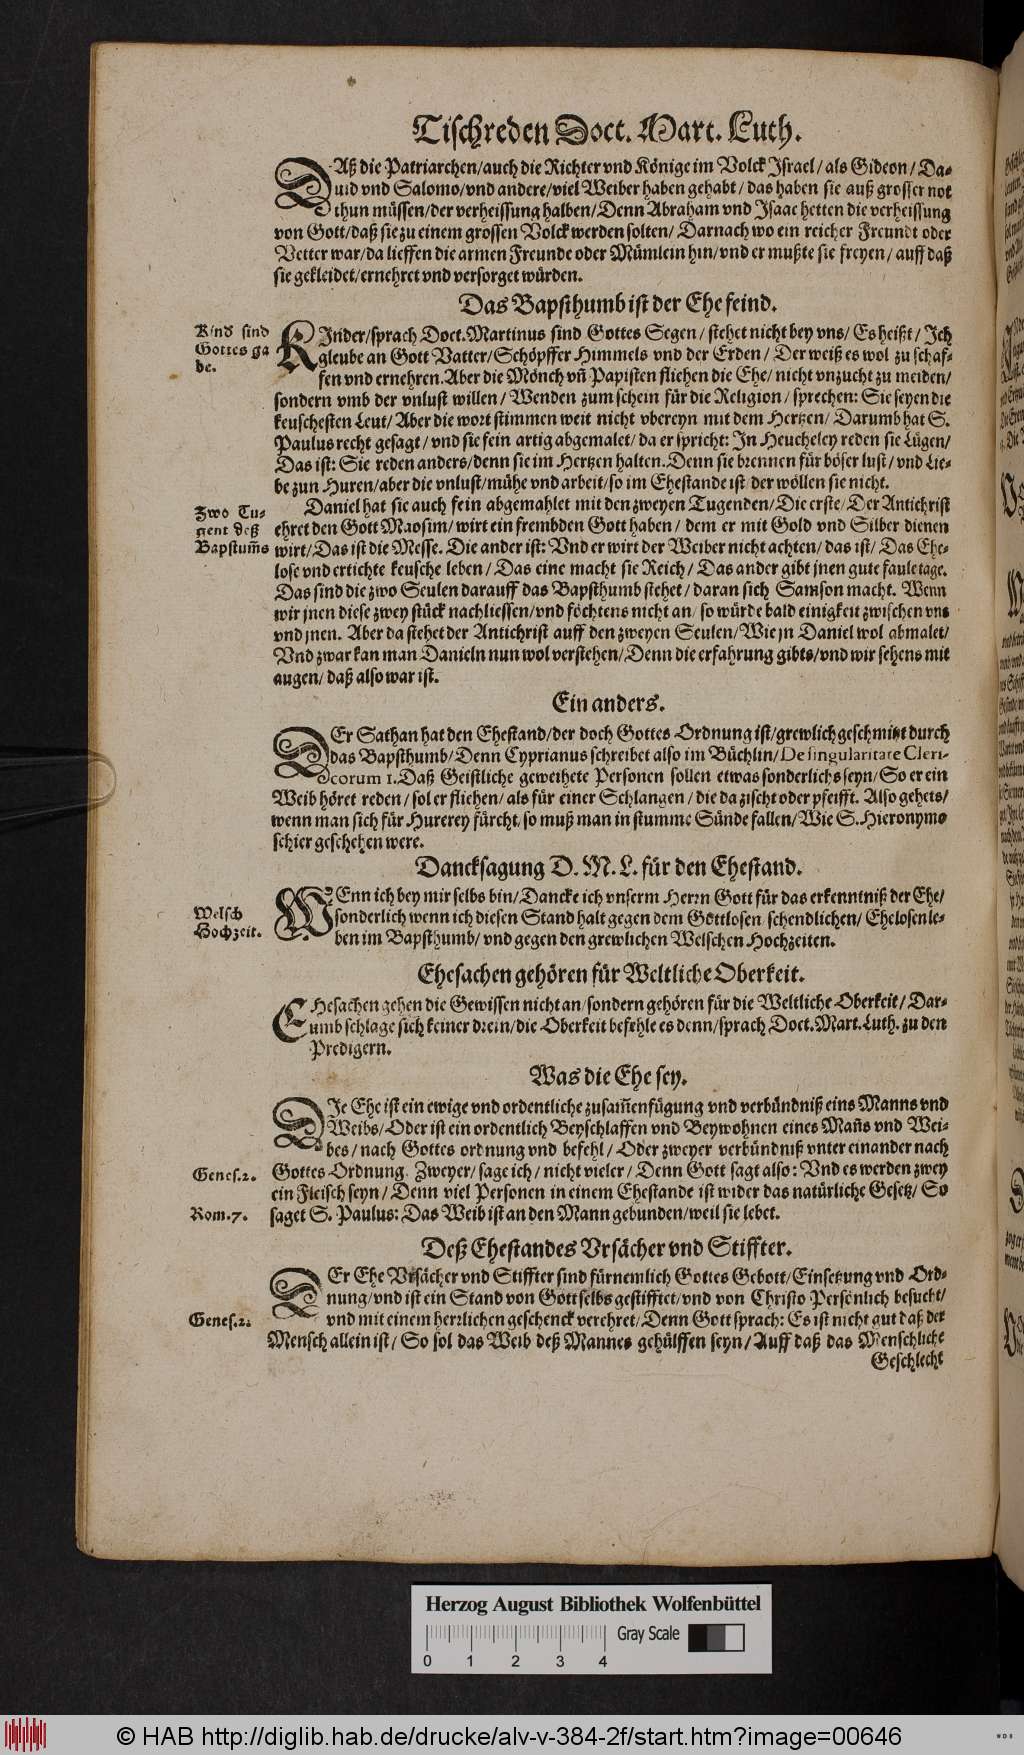 Tischreden Doct. Mart. Luth.
DAß die Patriarchen/auch die Richter vnd Könige im Volck Israel/ als Gideon/ Da-
uid vnd Salomo/vnd andere/viel Weiber haben gehabt/ das haben sie auß grosser not
thun müssen/der verheissung halben/Denn Abraham vnd Isaac hetten die verheissung
von Gott/daß sie zu einem grossen Volck werden solten/ Darnach wo ein reicher Freundt oder
Vetter war/da lieffen die armen Freunde oder Mümlein hin/vnd er mußte sie freyen/ auff daß
sie gekleidet/ernehret vnd versorget würden.
Das Bapsthumb ist der Ehe feind.
Kind sind
Gottes ga
be.
KInder/sprach Doct.Martinus sind Gottes Segen/ stehet nicht bey vns/ Es heißt/ Ich
gleube an Gott Vatter/Schöpffer Himmels vnd der Erden/ Der weiß es wol zu schaf-
fen vnd ernehren.Aber die Mönch vñ Papisten fliehen die Ehe/ nicht vnzucht zu meiden/
sondern vmb der vnlust willen/ Wenden zum schein für die Religion/ sprechen: Sie seyen die
keuschesten Leut/Aber die wort stimmen weit nicht vberein mit dem Hertzen/ Darumb hat S.
Paulus recht gesagt/ vnd sie fein artig abgemalet/ da er spricht: In Heucheley reden sie Lügen/
Das ist: Sie reden anders/denn sie im Hertzen halten.Denn sie brennen für böser lust/ vnd Lie-
be zun Huren/aber die vnlust/mühe vnd arbeit/so im Ehestande ist/der wöllen sie nicht.
Zwo Tu-
gent deß
Bapstum̃s
Daniel hat sie auch fein abgemahlet mit den zweyen Tugenden/Die erste/ Der Antichrist
ehret den Gott Maosim/ wirt ein frembden Gott haben/ dem er mit Gold vnd Silber dienen
wirt/Das ist die Messe. Die ander ist: Vnd er wirt der Weiber nicht achten/ das ist/ Das Ehe-
lose vnd ertichte keusche leben/ Das eine macht sie Reich/ Das ander gibt jnen gute faule tage.
Das sind die zwo Seulen darauff das Bapsthumb stehet/ daran sich Samson macht. Wenn
wir jnen diese zwey stück nachliessen/vnd föchtens nicht an/ so würde bald einigkeit zwischen vns
vnd jnen. Aber da stehet der Antichrist auff den zweyen Seulen/Wie jn Daniel wol abmalet/
Vnd zwar kan man Danieln nun wol verstehen/Denn die erfahrung gibts/vnd wir sehens mit
augen/ daß also war ist.
Ein anders.
DEr Sathan hat den Ehestand/der doch Gottes Ordnung ist/grewlich geschmitzt durch
das Bapsthumb/Denn Cyprianus schreibet also im Büchlin/De singularitate Cleri-
corum 1.Daß Geistliche geweihete Personen sollen etwas sonderlichs seyn/So er ein
Weib höret reden/ sol er fliehen/ als für einer Schlangen/ die da zischt oder pfeifft. Also gehets/
wenn man sich für Hurerey fürcht/so muß man in stumme Sünde fallen/Wie S.Hieronymo
schier geschehen were.
Dancksagung D. M. L. für den Ehestand.
Welsch
Hochzeit.
WEnn ich bey mir selbs bin/Dancke ich vnserm Herrn Gott für das erkenntniß der Ehe/
sonderlich wenn ich diesen Stand halt gegen dem Gottlosen/schendlichen/ Ehelosen le-
ben im Bapsthumb/ vnd gegen den grewlichen Welschen Hochzeiten.
Ehesachen gehören für Weltliche Oberkeit.
EHesachen gehen die Gewissen nicht an/sondern gehören für die Weltliche Oberkeit/ Dar-
umb schlage sich keiner drein/die Oberkeit befehle es denn/sprach Doct.Mart.Luth. zu den
Predigern.
Was die Ehe sey.
DIe Ehe ist ein ewige vnd ordentliche zusam̃enfügung vnd verbündniß eins Manns vnd
Weibs/Oder ist ein ordentlich Beyschlaffen vnd Beywohnen eines Mañs vnd Wei-
bes/ nach Gottes ordnung vnd befehl/ Oder zweyer verbündniß vnter einander nach
Genes.2.
Gottes Ordnung. Zweyer/ sage ich/ nicht vieler/ Denn Gott sagt also: Vnd es werden zwey
ein Fleisch seyn/ Denn viel Personen in einem Ehestande ist wider das natürliche Gesetz/ So
Rom.7.
saget S. Paulus: Das Weib ist an den Mann gebunden/weil sie lebet.
Deß Ehestandes Vrsächer vnd Stiffter.
DEr Ehe Vrsächer vnd Stiffter sind fürnemlich Gottes Gebott/Einsetzung vnd Ord-
nung/vnd ist ein Stand von Gott selbs gestifftet/vnd von Christo Persönlich besucht/
Genes.2.
vnd mit einem herrlichen geschenck verehret/Denn Gott sprach: Es ist nicht gut daß der
Mensch allein ist/ So sol das Weib deß Mannes gehülffen seyn/ Auff daß das Menschliche
Geschlecht
Herzog August Bibliothek Wolfenbüttel
Gray Scale
0 1 2 3 4
© HAB http://diglib.hab.de/drucke/alv-v-384-2f/start.htm?image=00646